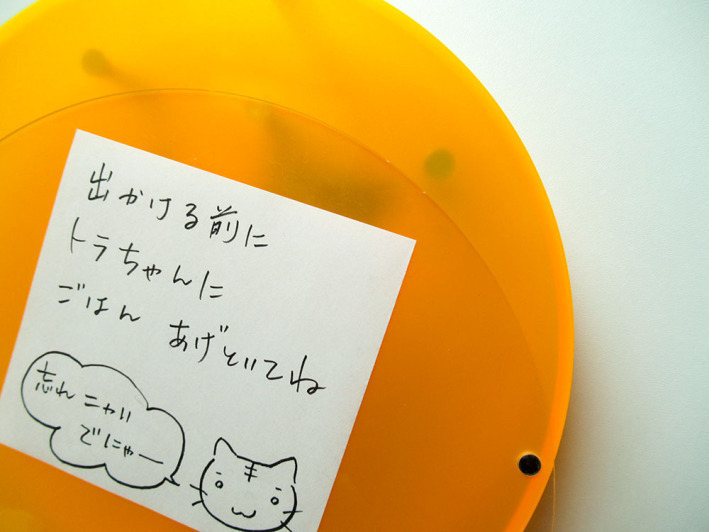 出かける前に
トラちゃんに
ごはん あげといてね
忘れニャい
でにゃー